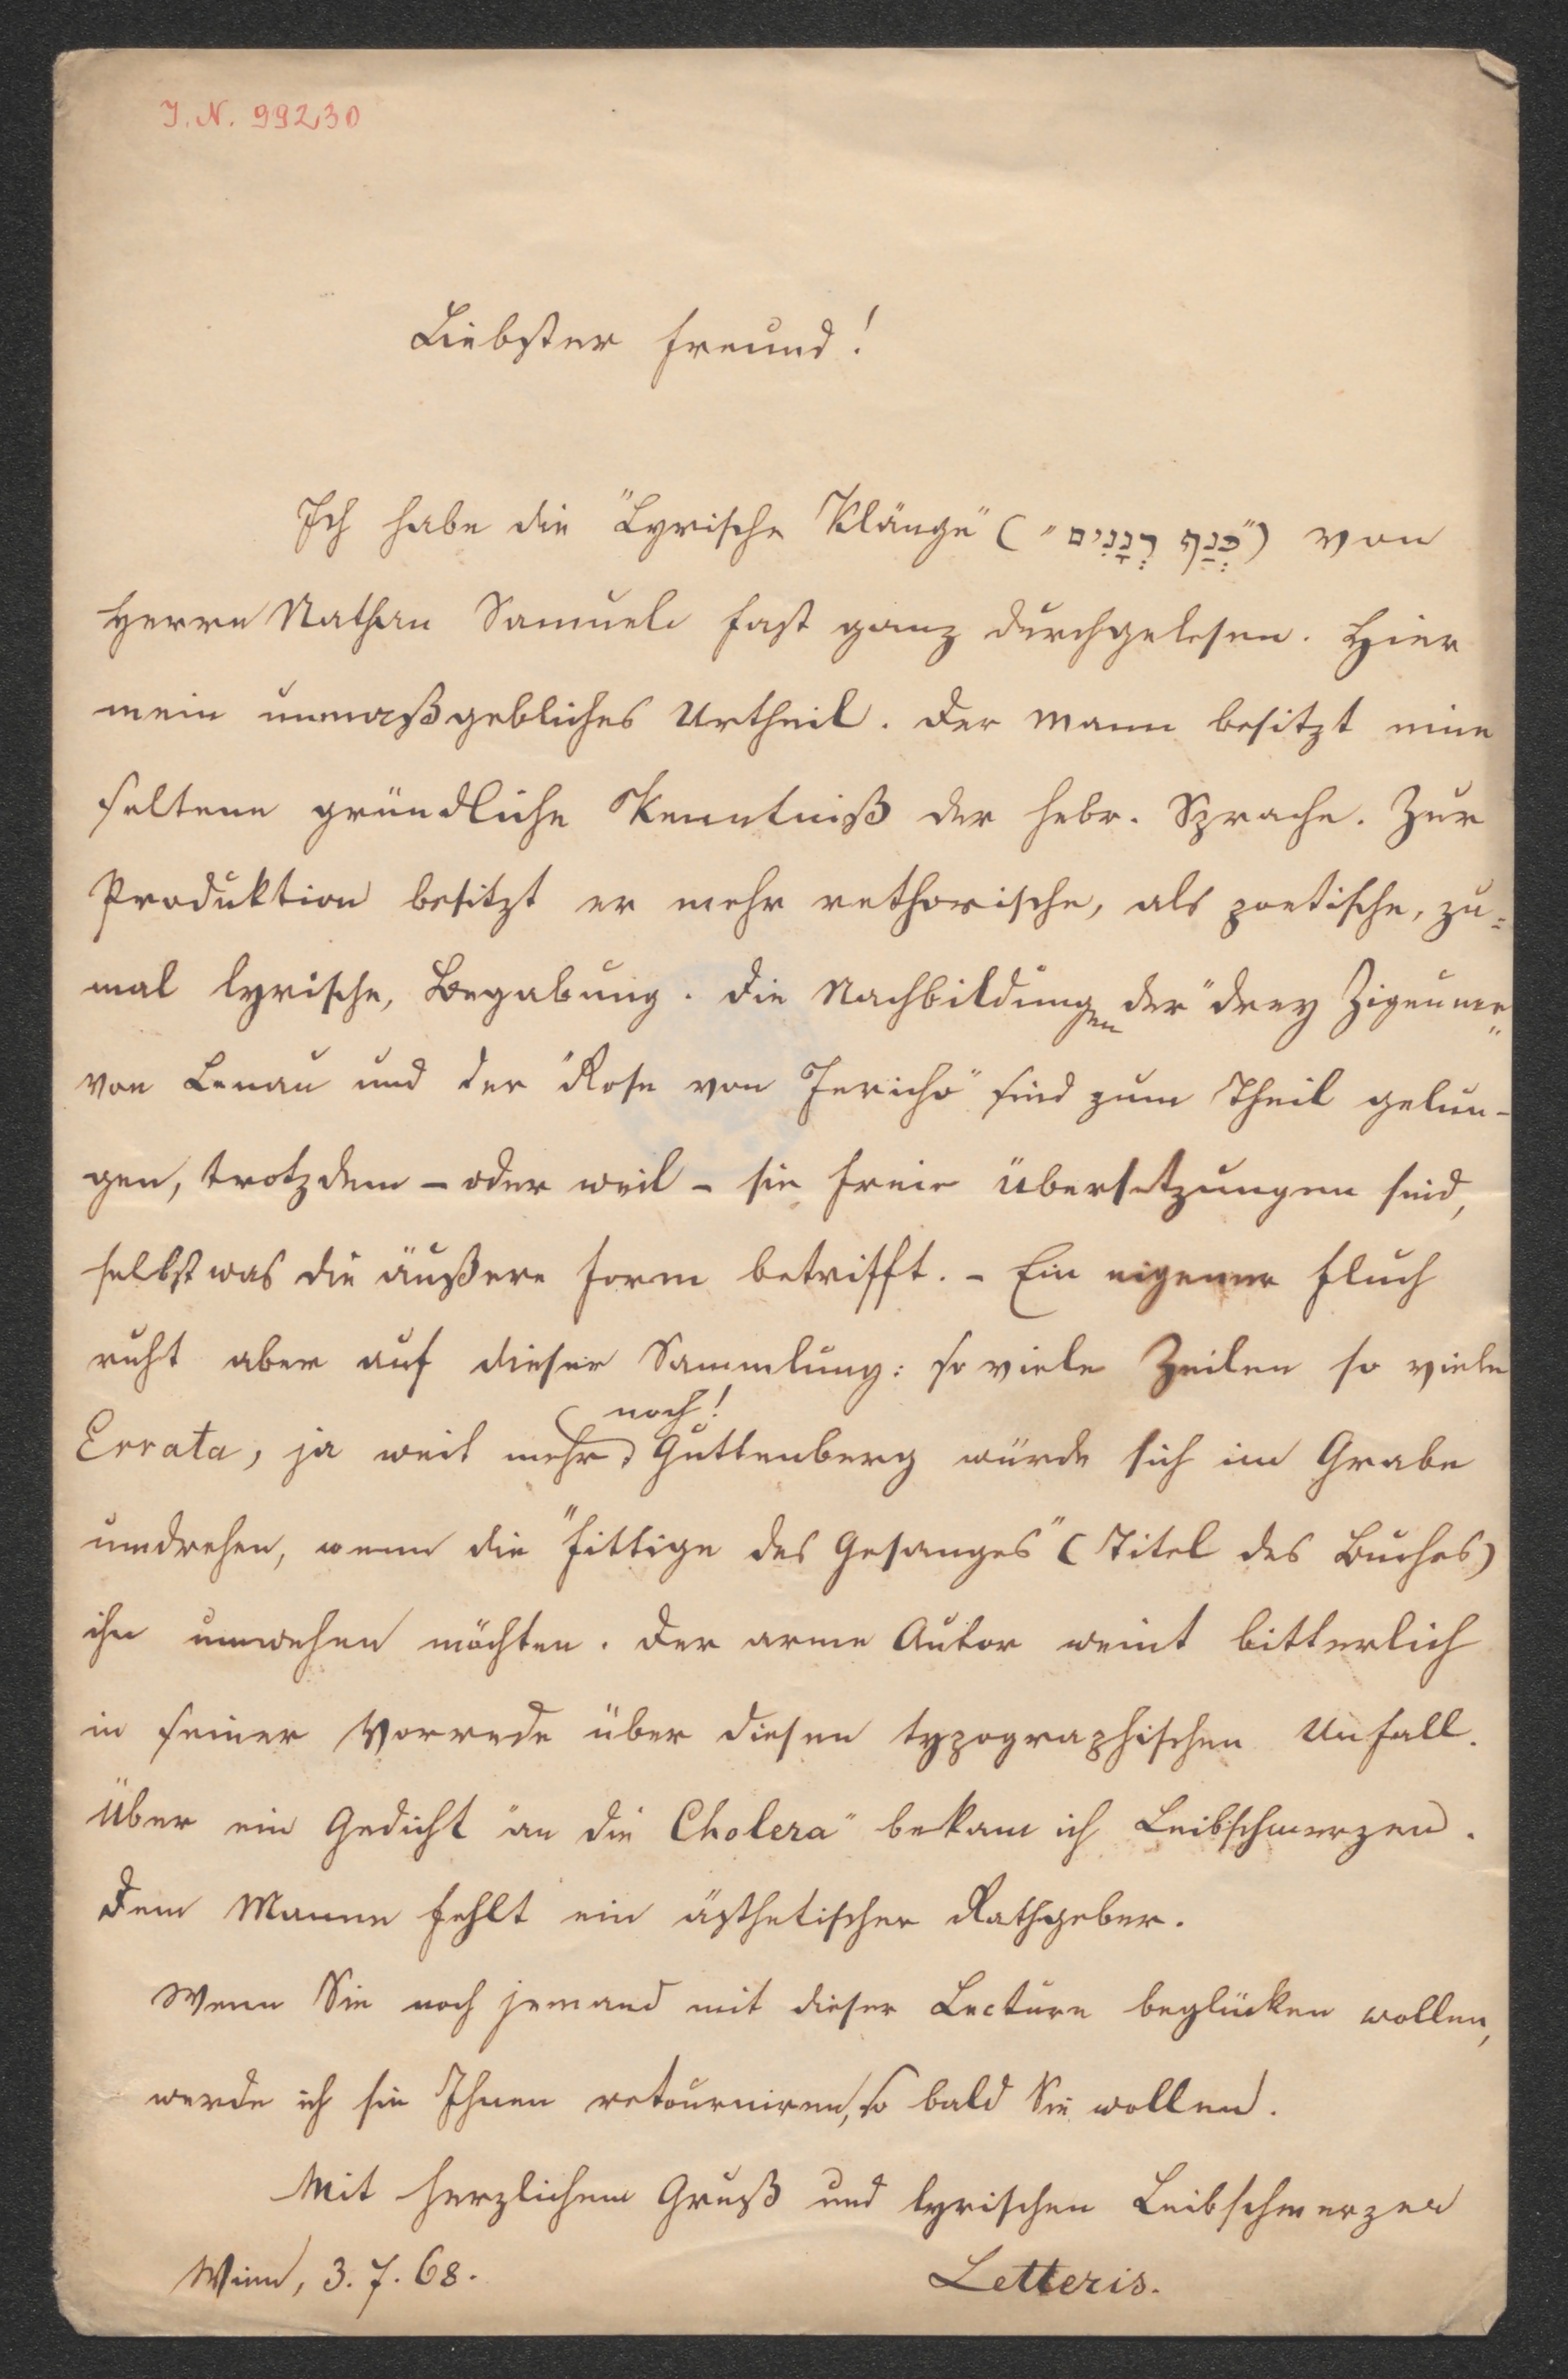 I. N. 99230
Liebster Freund!
Ich habe die "Lyrische Klänge" ("כְּנַף רְנָנִים") von
Herrn Nathan Samuely fast ganz durchgelesen. Hier
mein unmaßgebliches Urtheil. Der Mann besitzt eine
seltene gründliche Kenntniß der hebr. Sprache. Zur
Produktion besitzt er mehr rethorische, als poetische, zu=
mal lyrische, Begabung. Die Nachbildungen der "drey Zigeuner"
von Lenau und der "Rose von Jericho" sind zum Theil gelun-
gen, trotzdem – oder weil – sie freie Übersetzungen sind,
selbst was die äußere Form betrifft. – Ein eigener Fluch
ruht aber auf dieser Sammlung: so viele Zeilen so viele
Errata, ja weit mehr noch! Guttenberg würde sich im Grabe
umdrehen, wenn die "Fittige des Gesanges" (Titel des Buches)
ihn umwehen möchten. Der arme Autor weint bitterlich
in seiner Vorrede über diesen typographischen Unfall.
Über ein Gedicht "an die Cholera" bekam ich Leibschmerzen.
Dem Manne fehlt ein ästhetischer Rathgeber.
Wenn Sie noch jemand mit dieser Lecture beglücken wollen,
werde ich sie Ihnen retourniren, so bald Sie wollen.
Mit herzlichem Gruß und lyrischen Leibschmerzen
Wien, 3. 7. 68.
Letteris.